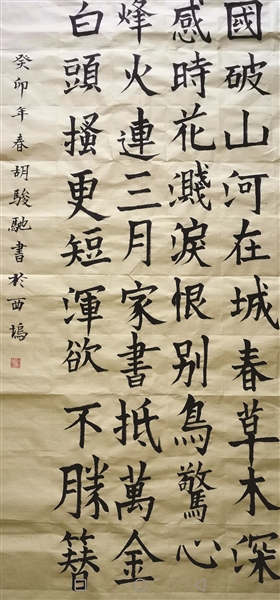 國破山河在城春草木深
感時花濺淚恨别鳥驚心
烽火連三月家書抵萬金
白頭搔更短渾欲不勝簪
癸卯年春胡駿馳書於西塢